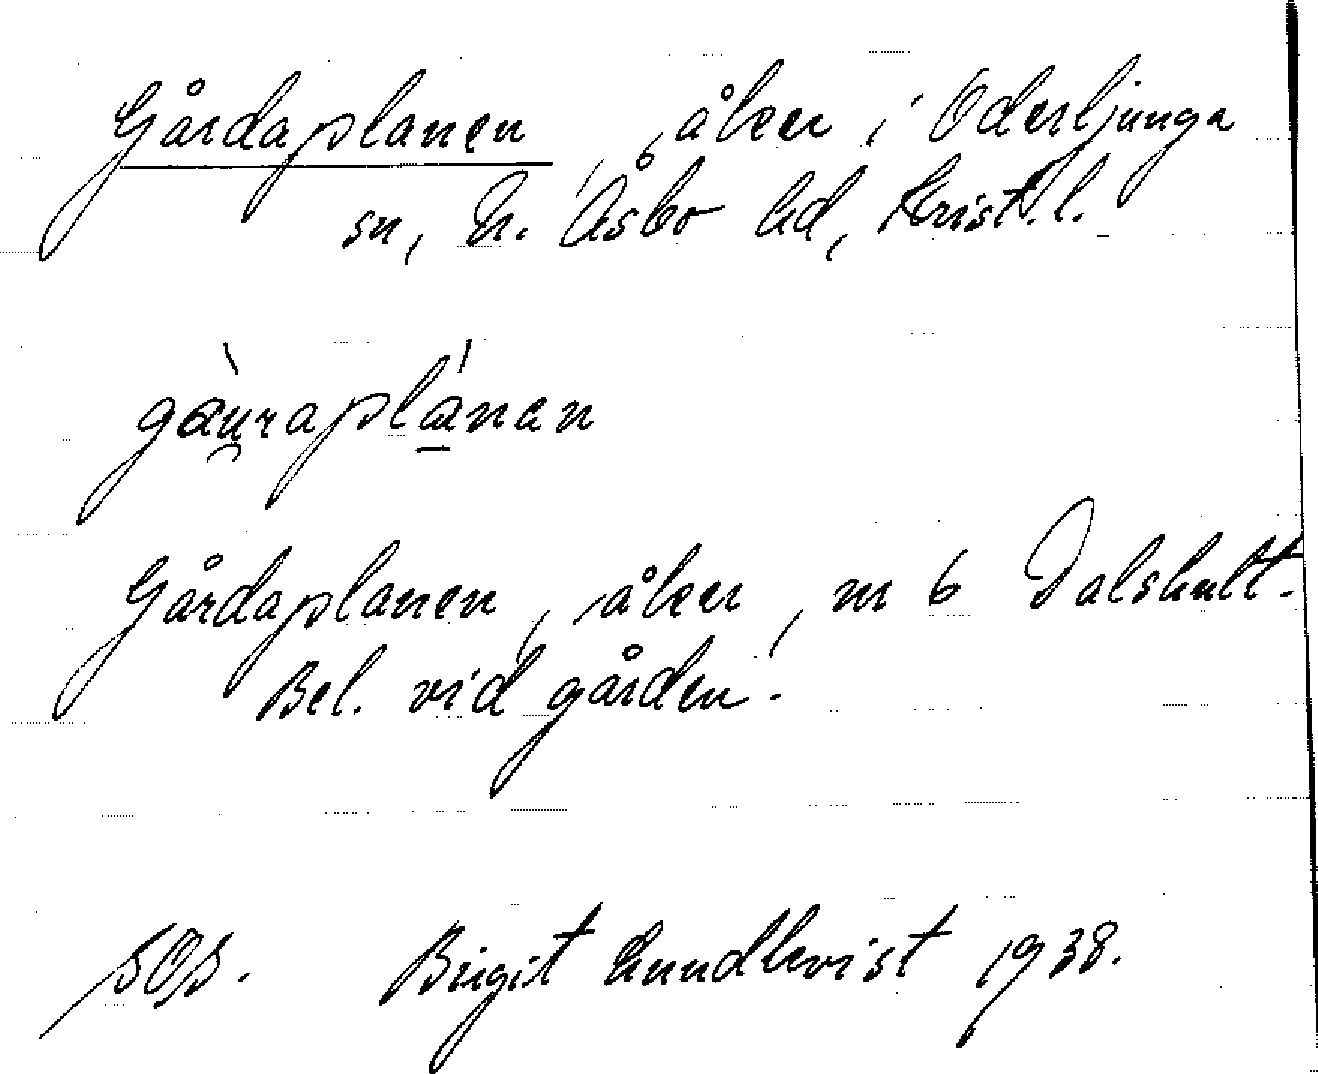 Gårdaplanen, åker i Oderljunga
sn, N. Åsbo hd, Krist. l.
gàu̯raplánen
Gårdaplanen, åker, nr 6 Dalshult.
Bel. vid gården.
SOS. Birgit Lundkvist 1938.